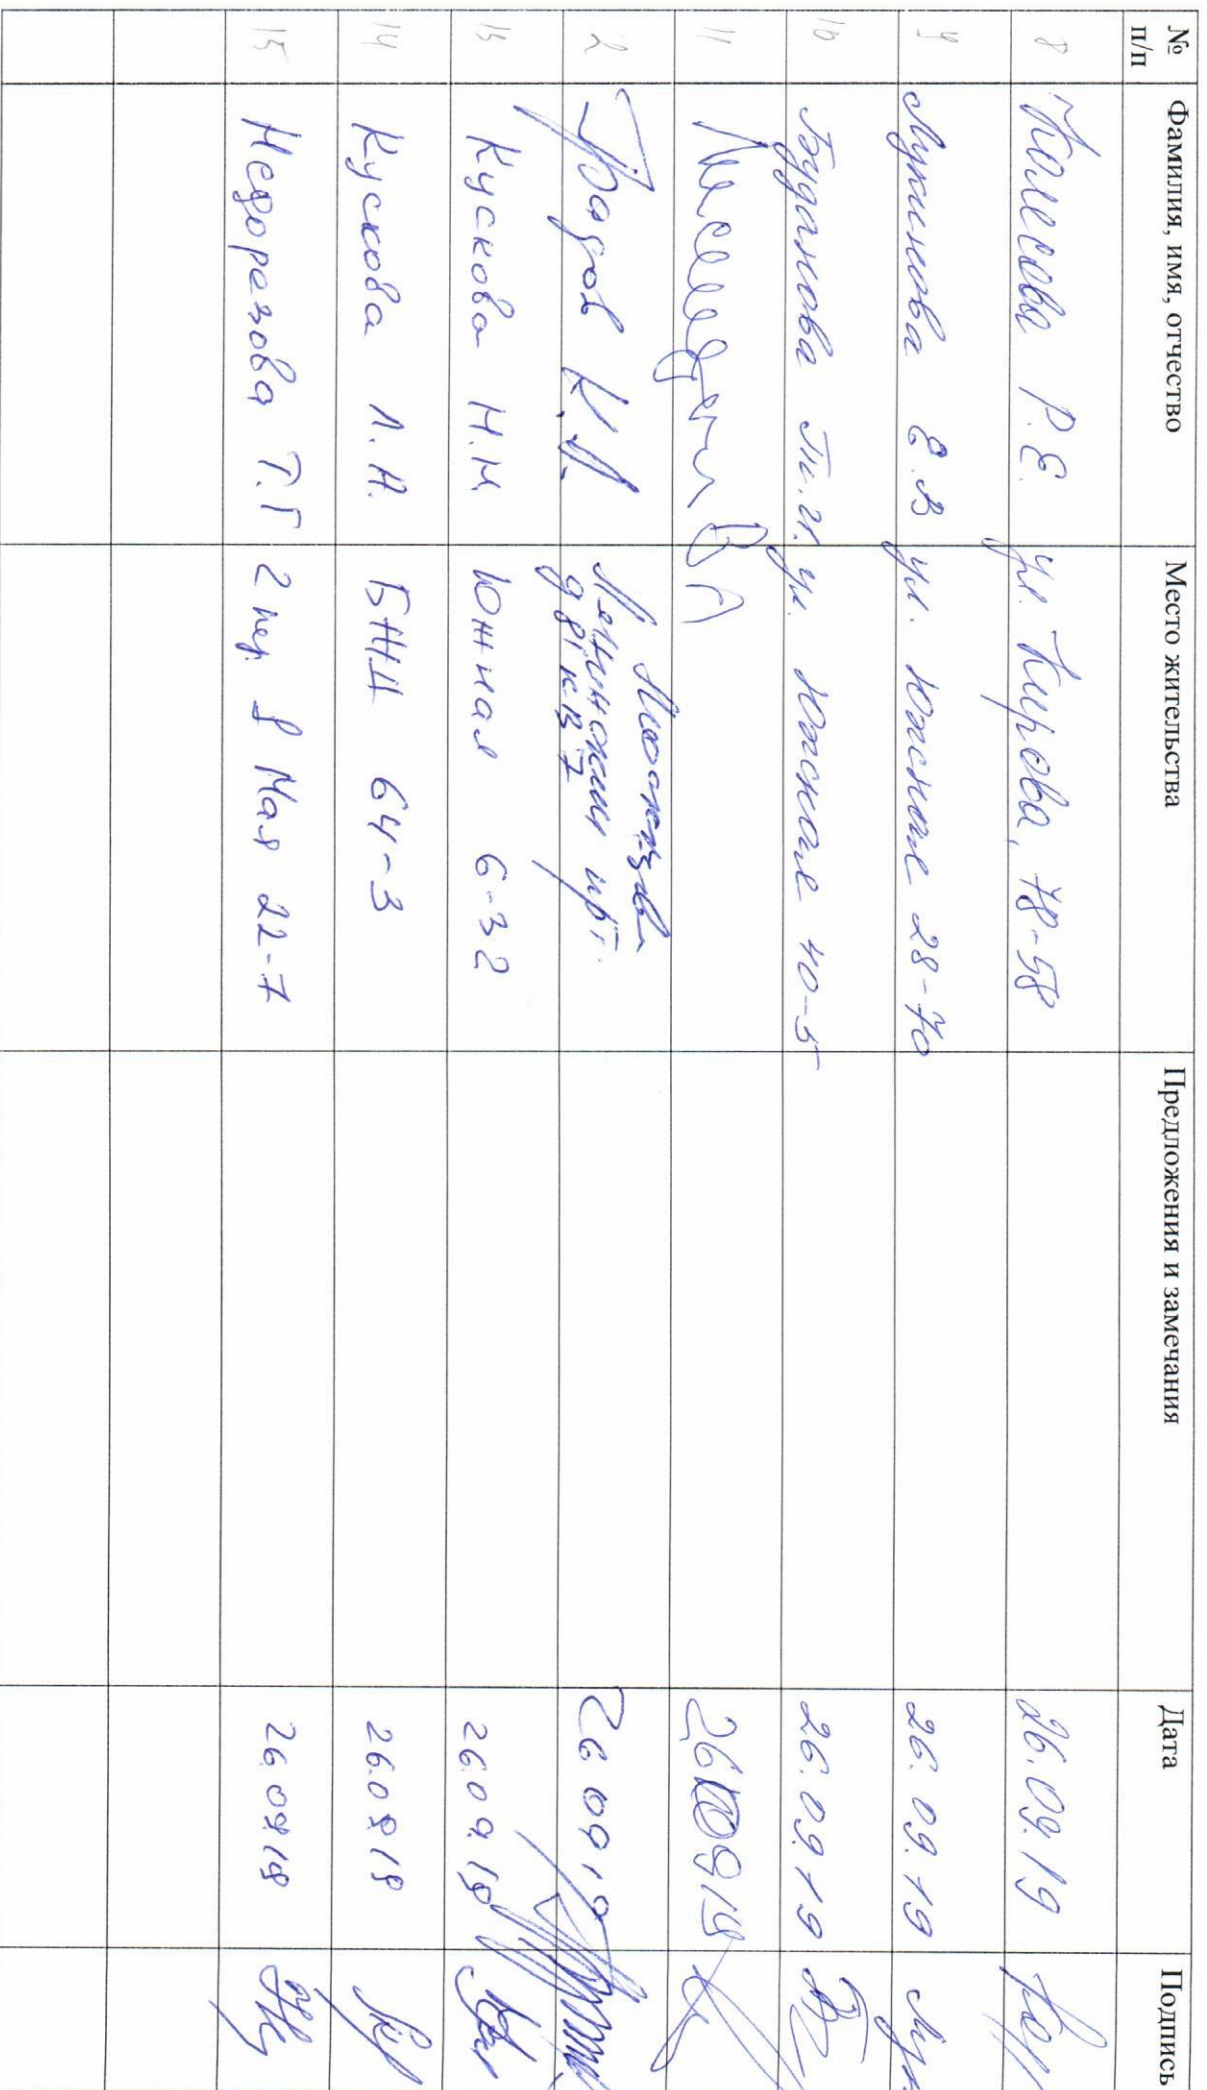 № п/п Фамилия, имя, отчество Место жительства Предложения и замечания Дата Подпись
8 Колесова Р.Е. ул. Кирова, 78-58 26.09.19
9 Лукинова Е.В ул. Южная 28-70 26.09.19
10 Буданова Т.И. ул. Южная 40-5 26.09.19
11 26 09 19
2 К.А. Ленинский пр-т. д 81 кв 7 26 09 19
13 Кускова Н.Н. Южная 6-32 26.09.19
14 Кускова Л.Н. БЖД 64-3 26.09.19
15 Недорезова Т.Г 2 пер. 1 Мая 22-7 26.09.19